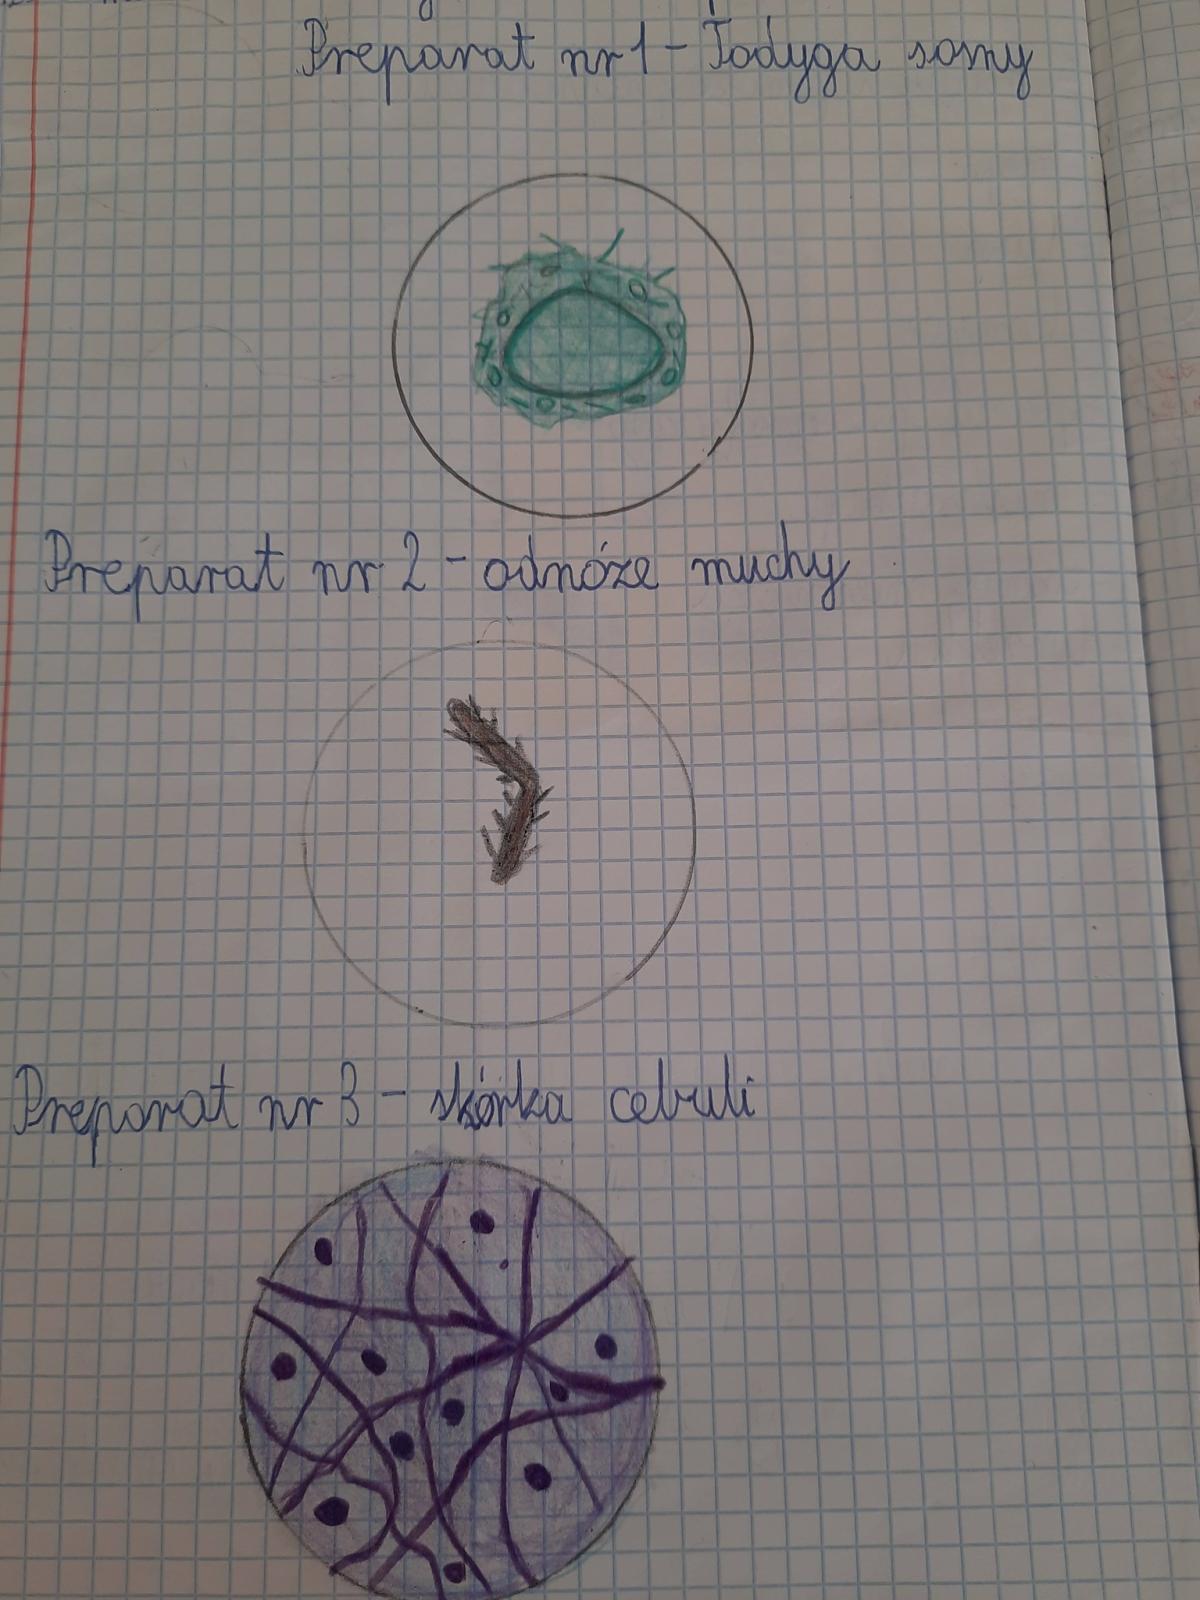 Preparat nr 1 - Łodyga sosny
Preparat nr 2 - odnóże muchy
Preparat nr 3 - skórka cebuli